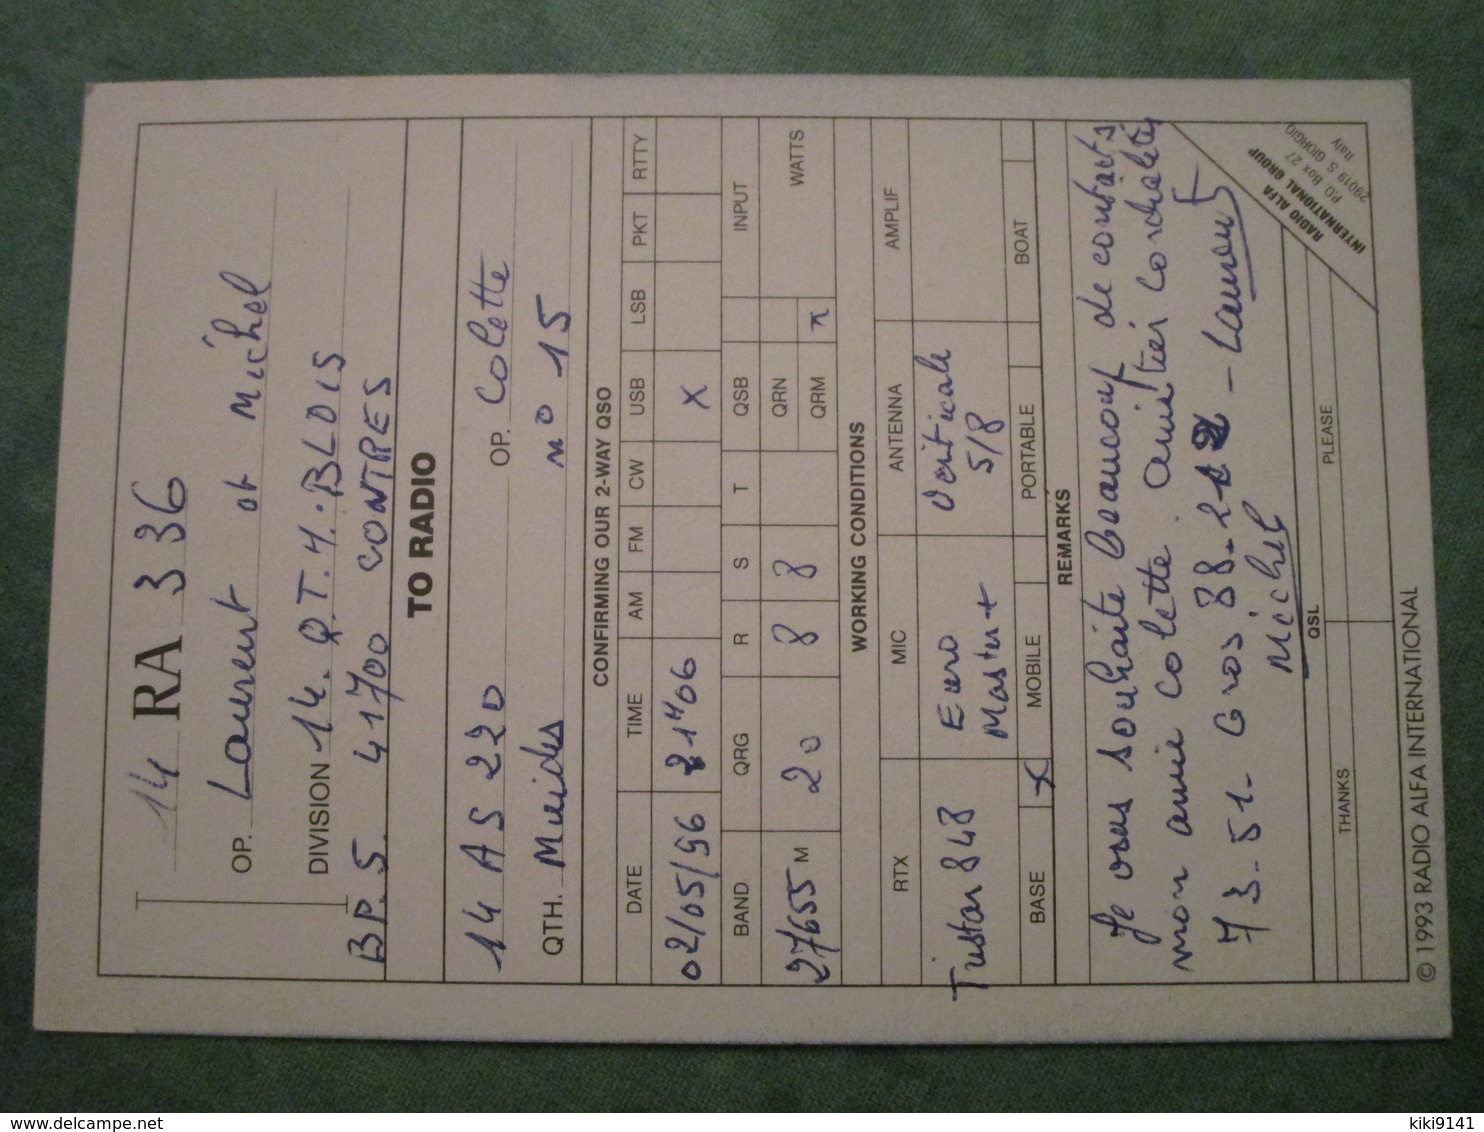 14 RA 336
OP. Laurent et Michel
DIVISION 14. Q.T.H. BLOIS
B.P. 5. 41700 CONTRES
TO RADIO
14 AS 220 OP. Colette
QTH. Muides N° 15
CONFIRMING OUR 2-WAY QSO
DATE TIME AM FM CW USB LSB PKT RTTY
02/05/96 21H06 X
BAND QRG R S T QSB INPUT
27655 M 20 8 8 QRN WATTS
QRM x
WORKING CONDITIONS
RTX MIC ANTENNA AMPLIF
Tristar 848 Euro Master + Verticale 5/8
BASE X MOBILE PORTABLE BOAT
REMARKS
Je vous souhaite beaucoup de contacts
mon amie Colette. amitiés cordialités
73-51- Gros 88- - Laurent
Michel
RADIO ALFA
INTERNATIONAL GROUP
P.O. Box 27
29019 S. GIORGIO
Italy
QSL
THANKS PLEASE
© 1993 RADIO ALFA INTERNATIONAL
delcampe.net
kiki9141